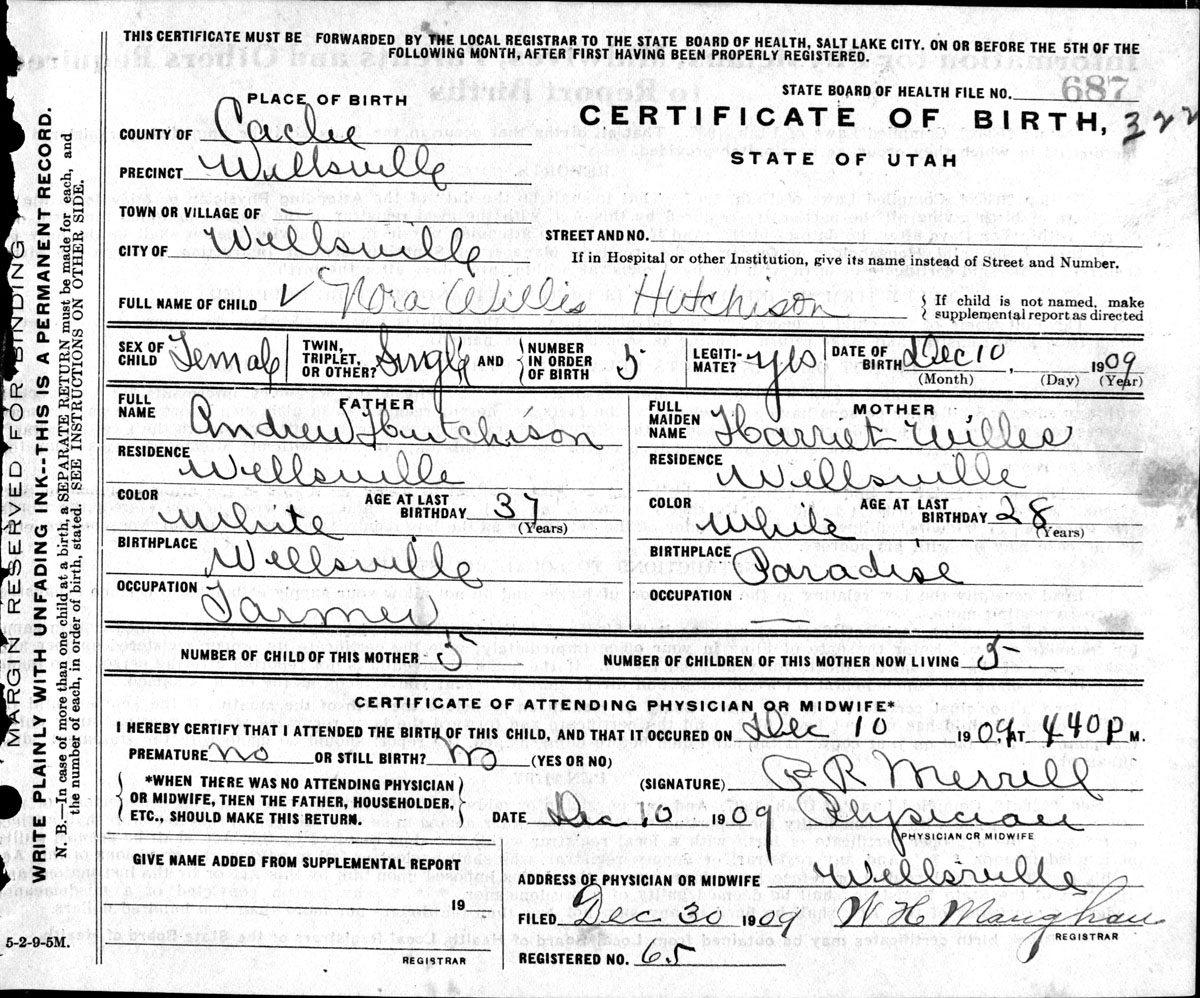 THIS CERTIFICATE MUST BE FORWARDED BY THE LOCAL REGISTRAR TO THE STATE BOARD OF HEALTH, SALT LAKE CITY. ON OR BEFORE THE 5TH OF THE
FOLLOWING MONTH, AFTER FIRST HAVING BEEN PROPERLY REGISTERED.
STATE BOARD OF HEALTH FILE NO. 687
PLACE OF BIRTH
CERTIFICATE OF BIRTH, 322
STATE OF UTAH
COUNTY OF Cache
PRECINCT Wellsville
TOWN OR VILLAGE OF —
CITY OF Wellsville STREET AND NO.
If in Hospital or other Institution, give its name instead of Street and Number.
FULL NAME OF CHILD Nora Willis Hutchison { If child is not named, make
supplemental report as directed
SEX OF CHILD Female TWIN, TRIPLET, OR OTHER? Single AND { NUMBER IN ORDER OF BIRTH 5 LEGITI- MATE? yes DATE OF BIRTH Dec 10, 1909
(Month) (Day) (Year)
FATHER
FULL NAME Andrew Hutchison
RESIDENCE Wellsville
COLOR White AGE AT LAST BIRTHDAY 37 (Years)
BIRTHPLACE Wellsville
OCCUPATION Farmer
MOTHER
FULL MAIDEN NAME Harriet Willes
RESIDENCE Wellsville
COLOR White AGE AT LAST BIRTHDAY 28 (Years)
BIRTHPLACE Paradise
OCCUPATION —
NUMBER OF CHILD OF THIS MOTHER - 5 NUMBER OF CHILDREN OF THIS MOTHER NOW LIVING 5
CERTIFICATE OF ATTENDING PHYSICIAN OR MIDWIFE*
I HEREBY CERTIFY THAT I ATTENDED THE BIRTH OF THIS CHILD, AND THAT IT OCCURED ON Dec 10 1909, AT 440 P. M.
PREMATURE no OR STILL BIRTH? no (YES OR NO)
*WHEN THERE WAS NO ATTENDING PHYSICIAN
OR MIDWIFE, THEN THE FATHER, HOUSEHOLDER,
ETC., SHOULD MAKE THIS RETURN.
(SIGNATURE) R Merrill
DATE Dec 10 1909 Physician
PHYSICIAN OR MIDWIFE
GIVE NAME ADDED FROM SUPPLEMENTAL REPORT
19
REGISTRAR
ADDRESS OF PHYSICIAN OR MIDWIFE Wellsville
FILED Dec. 30 1909 W H Maughan
REGISTRAR
REGISTERED NO. 65
5-2-9-5M.
MARGIN RESERVED FOR BINDING
WRITE PLAINLY WITH UNFADING INK--THIS IS A PERMANENT RECORD.
N. B.—In case of more than one child at a birth, a SEPARATE RETURN must be made for each, and
the number of each, in order of birth, stated. SEE INSTRUCTIONS ON OTHER SIDE.